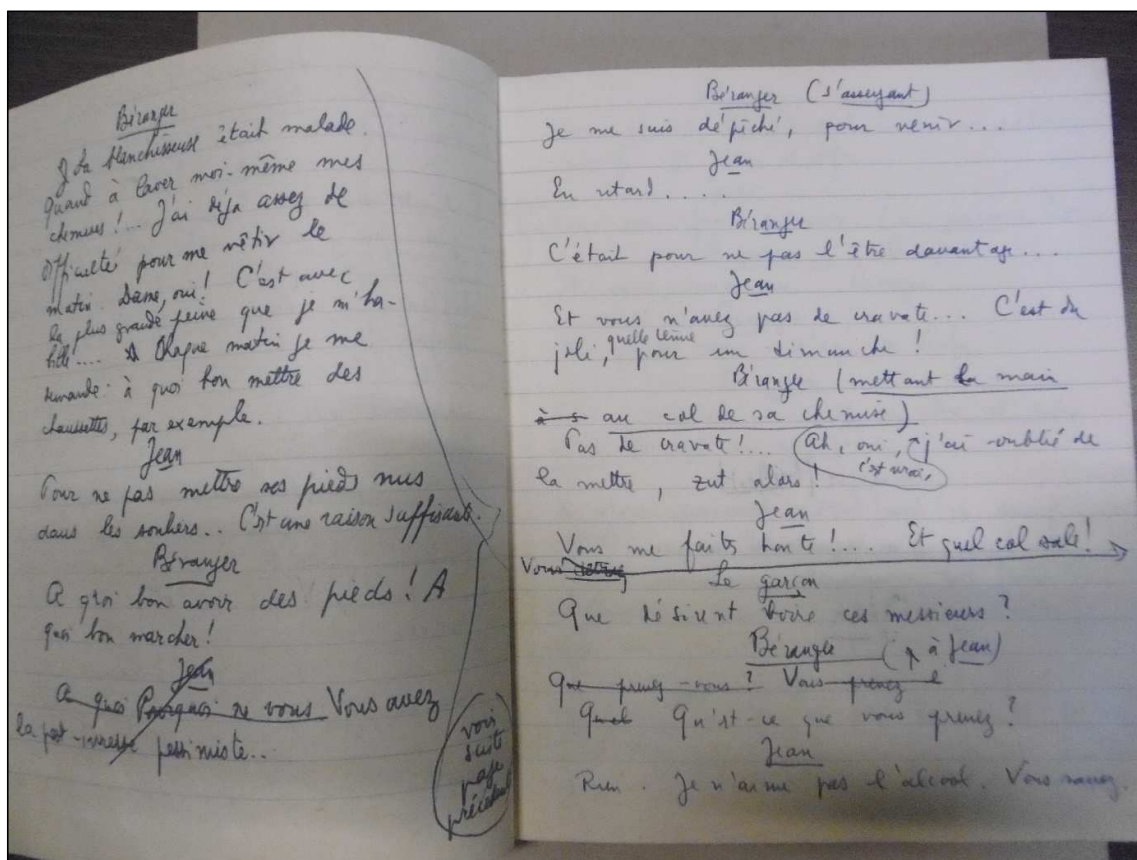 Béranger
La blanchisseuse était malade.
Quand à laver moi-même mes
chemises !... J'ai déjà assez de
difficulté pour me vêtir le
matin. Dame, oui ! C'est avec
la plus grande peine que je m'ha-
bille.... Chaque matin je me
demande : à quoi bon mettre des
chaussettes, par exemple.
Jean
Pour ne pas mettre ses pieds nus
dans les souliers.. C'est une raison suffisante.
Béranger
A quoi bon avoir des pieds ! A
quoi bon marcher !
Jean
A quoi Pourquoi ne vous Vous avez
la post-ivresse pessimiste..
voir
suite
page
précédente
Béranger (s'asseyant)
Je me suis dépêché, pour venir...
Jean
En retard....
Béranger
C'était pour ne pas l'être davantage...
Jean
Et vous n'avez pas de cravate... C'est du
joli, quelle tenue pour un dimanche !
Béranger (mettant la main
à s au col de sa chemise)
Pas de cravate !... Ah, oui, c'est vrai, j'ai oublié de
la mettre, zut alors !
Jean
Vous me faites honte !... Et quel col sale !
Vous
Le garçon
Que désirent boire ces messieurs ?
Béranger (à Jean)
Que prenez-vous ? Vous prenez
Quel Qu'est-ce que vous prenez ?
Jean
Rien. Je n'aime pas l'alcool. Vous savez.